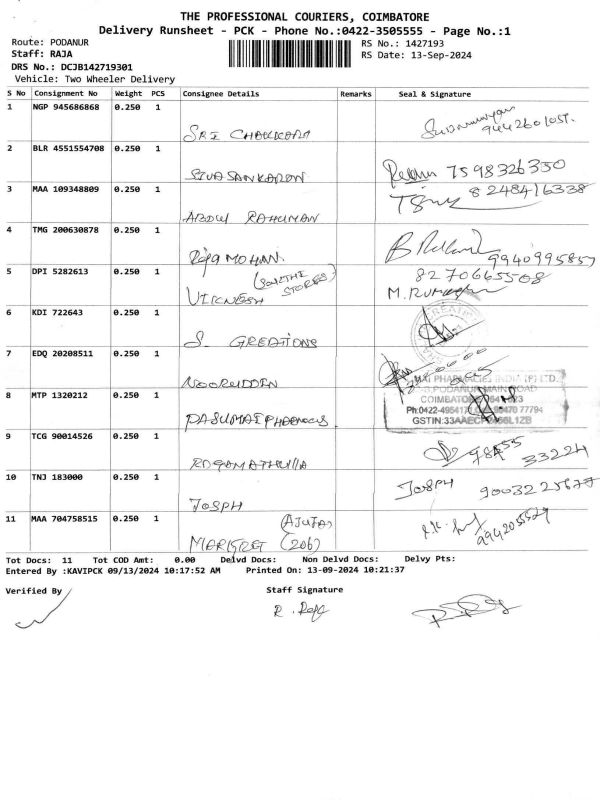 THE PROFESSIONAL COURIERS, COIMBATORE
Delivery Runsheet - PCK - Phone No.:0422-3505555 - Page No.:1
Route: PODANUR RS No.: 1427193
Staff: RAJA RS Date: 13-Sep-2024
DRS No.: DCJB142719301
Vehicle: Two Wheeler Delivery
S No Consignment No Weight PCS Consignee Details Remarks Seal & Signature
1 NGP 945686868 0.250 1
SRI CHAKKARA
2 BLR 4551554708 0.250 1
SIVASANKARAN 7598326350
3 MAA 109348809 0.250 1 8248416338
ABDUL RAHUMAN
4 TMG 200630878 0.250 1
Raja MOHAN 9940995857
5 DPI 5282613 0.250 1 (SAKTHI STORES) 8270665508
VIKNESH M.
6 KDI 722643 0.250 1
S. GREATIONS
7 EDQ 20208511 0.250 1
NOORUDDEN
PHARMACIES INDIA (P) LTD.
PODANUR MAIN ROAD
8 MTP 1320212 0.250 1 COIMBATORE
PASUMAI Ph:0422-495417 77794
GSTIN:33AAEC
9 TCG 90014526 0.250 1
33224
10 TNJ 183000 0.250 1 JOSPH 9003225677
JOSPH
11 MAA 704758515 0.250 1 (AJUTA)
MARIGRET (206)
Tot Docs: 11 Tot COD Amt: 0.00 Delvd Docs: Non Delvd Docs: Delvy Pts:
Entered By :KAVIPCK 09/13/2024 10:17:52 AM Printed On: 13-09-2024 10:21:37
Verified By Staff Signature
R. Raja